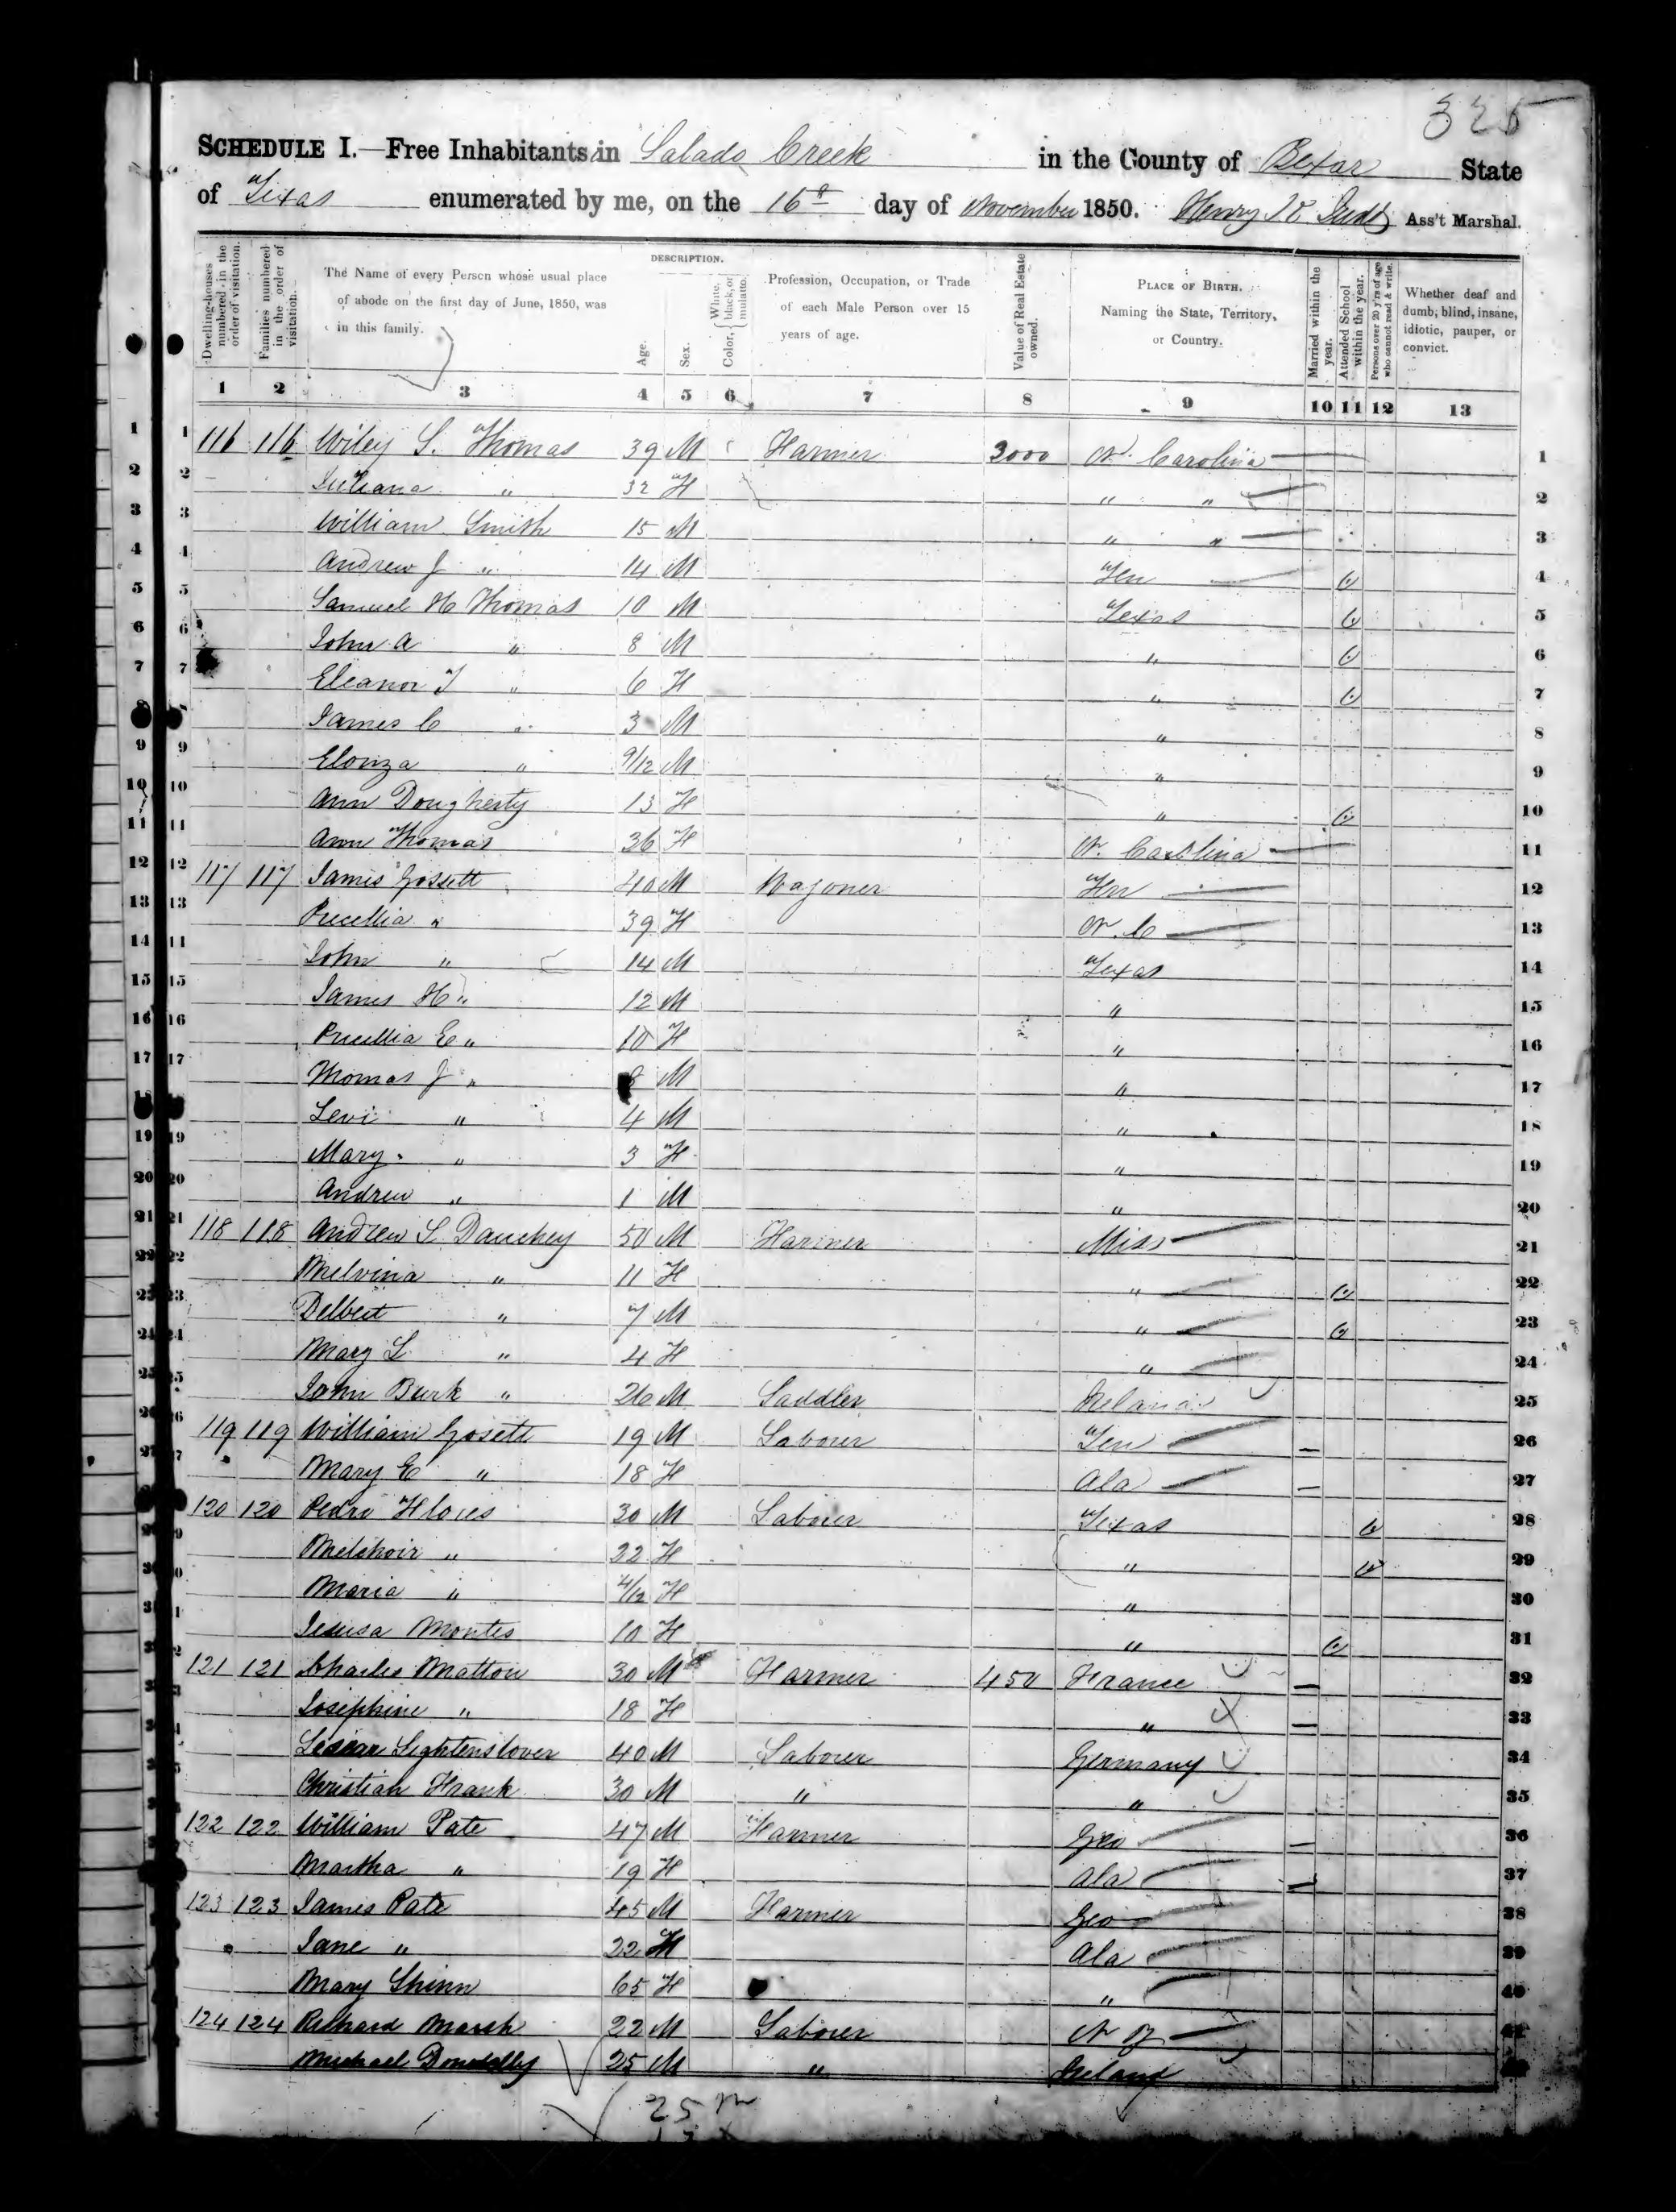 325
SCHEDULE I.—Free Inhabitants in Salado Creek in the County of Bexar State
of Texas enumerated by me, on the 16th day of November 1850. Henry Ass't Marshal.
Dwelling-houses numbered in the order of visitation.
Families numbered in the order of visitation.
The Name of every Person whose usual place of abode on the first day of June, 1850, was in this family.
DESCRIPTION.
Age.
Sex.
Color, { White, black, or mulatto.
Profession, Occupation, or Trade of each Male Person over 15 years of age.
Value of Real Estate owned.
PLACE OF BIRTH. Naming the State, Territory, or Country.
Married within the year.
Attended School within the year.
Persons over 20 y'rs of age who cannot read & write.
Whether deaf and dumb, blind, insane, idiotic, pauper, or convict.
1 2 3 4 5 6 7 8 9 10 11 12 13
1 116 116 Wiley S. Thomas 39 M Farmer 3000 N. Carolina 1
2 Juliana " 32 F " " 2
3 William Smith 15 M " " 3
4 Andrew J " 14 M Ten 4
5 Samuel H Thomas 10 M Texas 5
6 John A " 8 M " 6
7 Eleanor T " 6 F " 7
8 James C " 3 M " 8
9 Elonza " 9/12 M " 9
10 Ann Dougherty 13 F " 10
11 Ann Thomas 36 F N. Carolina 11
12 117 117 James Gossett 40 M Wagoner Ten 12
13 Precellia " 39 F N. C 13
14 John " 14 M Texas 14
15 James H " 12 M " 15
16 Precellia E " 10 F " 16
17 Thomas J " 8 M " 17
18 Levi " 4 M " 18
19 Mary " 3 F " 19
20 Andrew " 1 M " 20
21 118 118 Andrew S. Dauchey 50 M Farmer Miss 21
22 Melvina " 11 F " 22
23 Delbert " 7 M " 23
24 Mary L " 4 F " 24
25 John Burk " 26 M Saddler Ireland 25
26 119 119 William Gosett 19 M Laborer Ten 26
27 Mary E " 18 F Ala 27
28 120 120 Pedro Flores 30 M Laborer Texas 28
29 Melchoir " 22 F " 29
30 Maria " 4/12 F " 30
31 Jesusa Montes 10 F " 31
32 121 121 Charles Matton 30 M Farmer 450 France 32
33 Josephine " 18 F " 33
34 Lightenstover 40 M Laborer Germany 34
35 Christian Frank 30 M " " 35
36 122 122 William Pate 47 M Farmer Geo 36
37 Martha " 19 F Ala 37
38 123 123 James Pate 45 M Farmer Geo 38
39 Jane " 22 F Ala 39
40 Mary Shinn 65 F " 40
41 124 124 Richard Marsh 22 M Laborer N Y 41
42 Michael Donnelly 25 M " Ireland 42
25 m